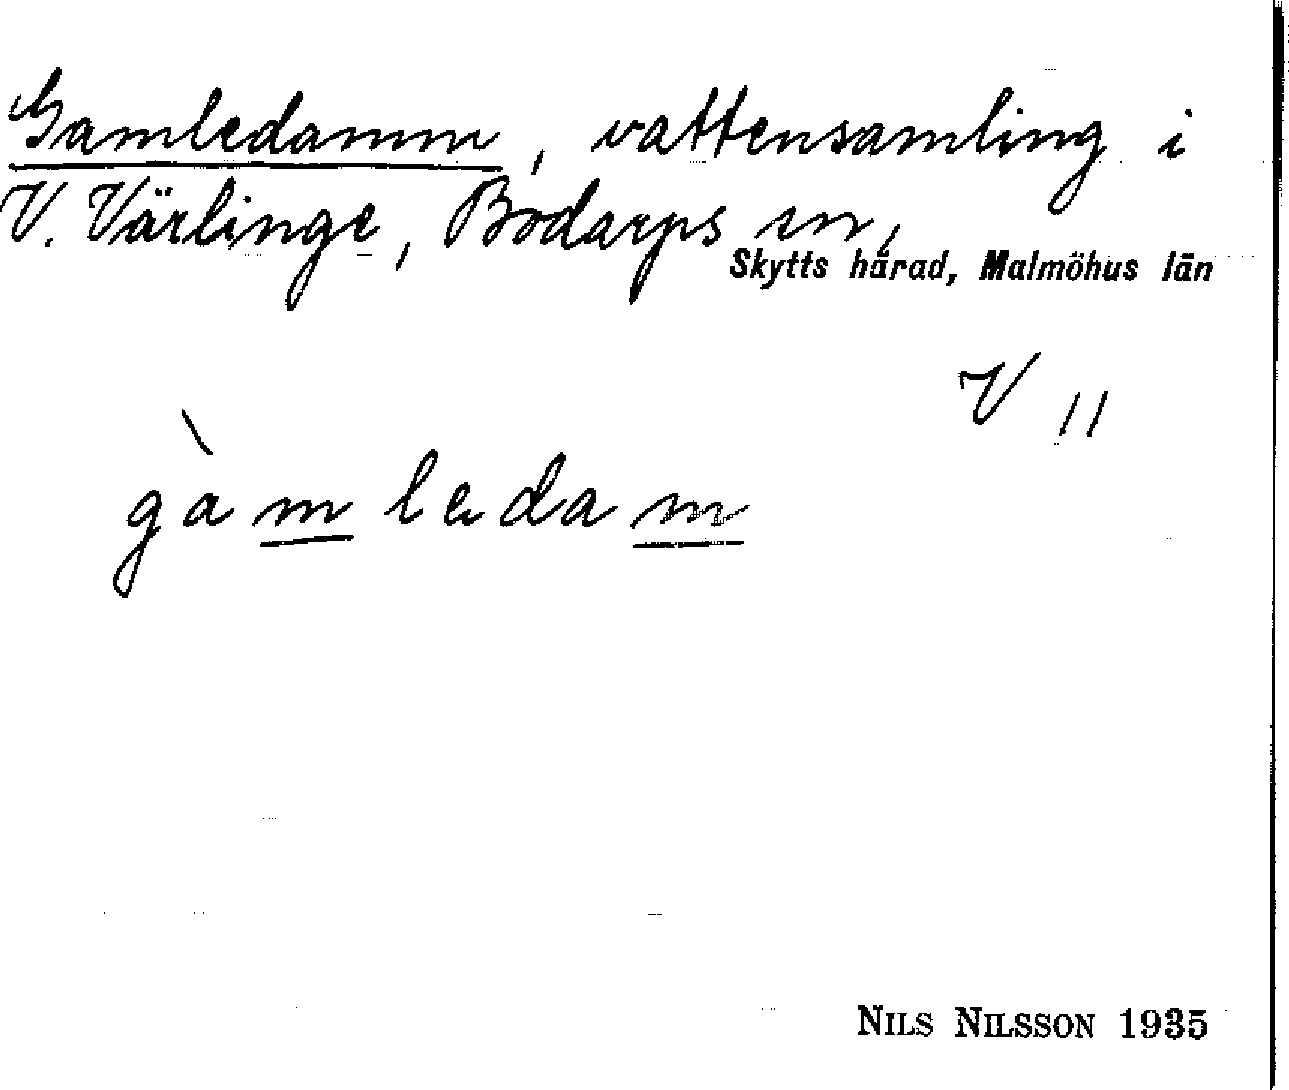 Gamledamm, vattensamling i
V. Värlinge, Bodarps sn,
Skytts härad, Malmöhus län
V 11
gàmledam
NILS NILSSON 1935